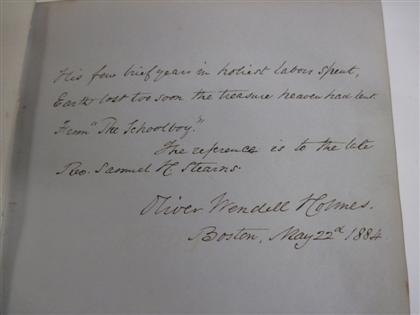 His few brief years in holiest labors spent,
Earth lost too soon the treasure heaven had lent.
From "The Schoolboy."
The reference is to the late
Rev. Samuel H. Stearns.
Oliver Wendell Holmes.
Boston, May 22d 1884.